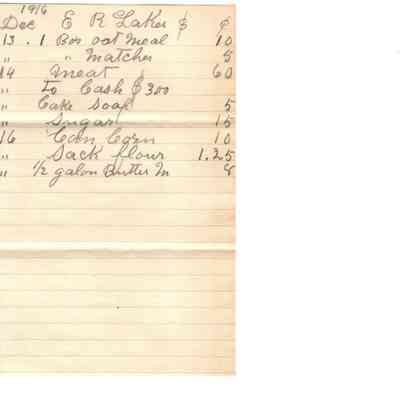 1916
Dec E R Laker $ ¢
13 . 1 Box oat meal 10
" " matches 5
14 meat 60
" To Cash $ 3.00
" Cake Soap 5
" Sugar 15
16 Can Corn 10
" Sack flour 1.25
" 1/2 galon Butter m 8